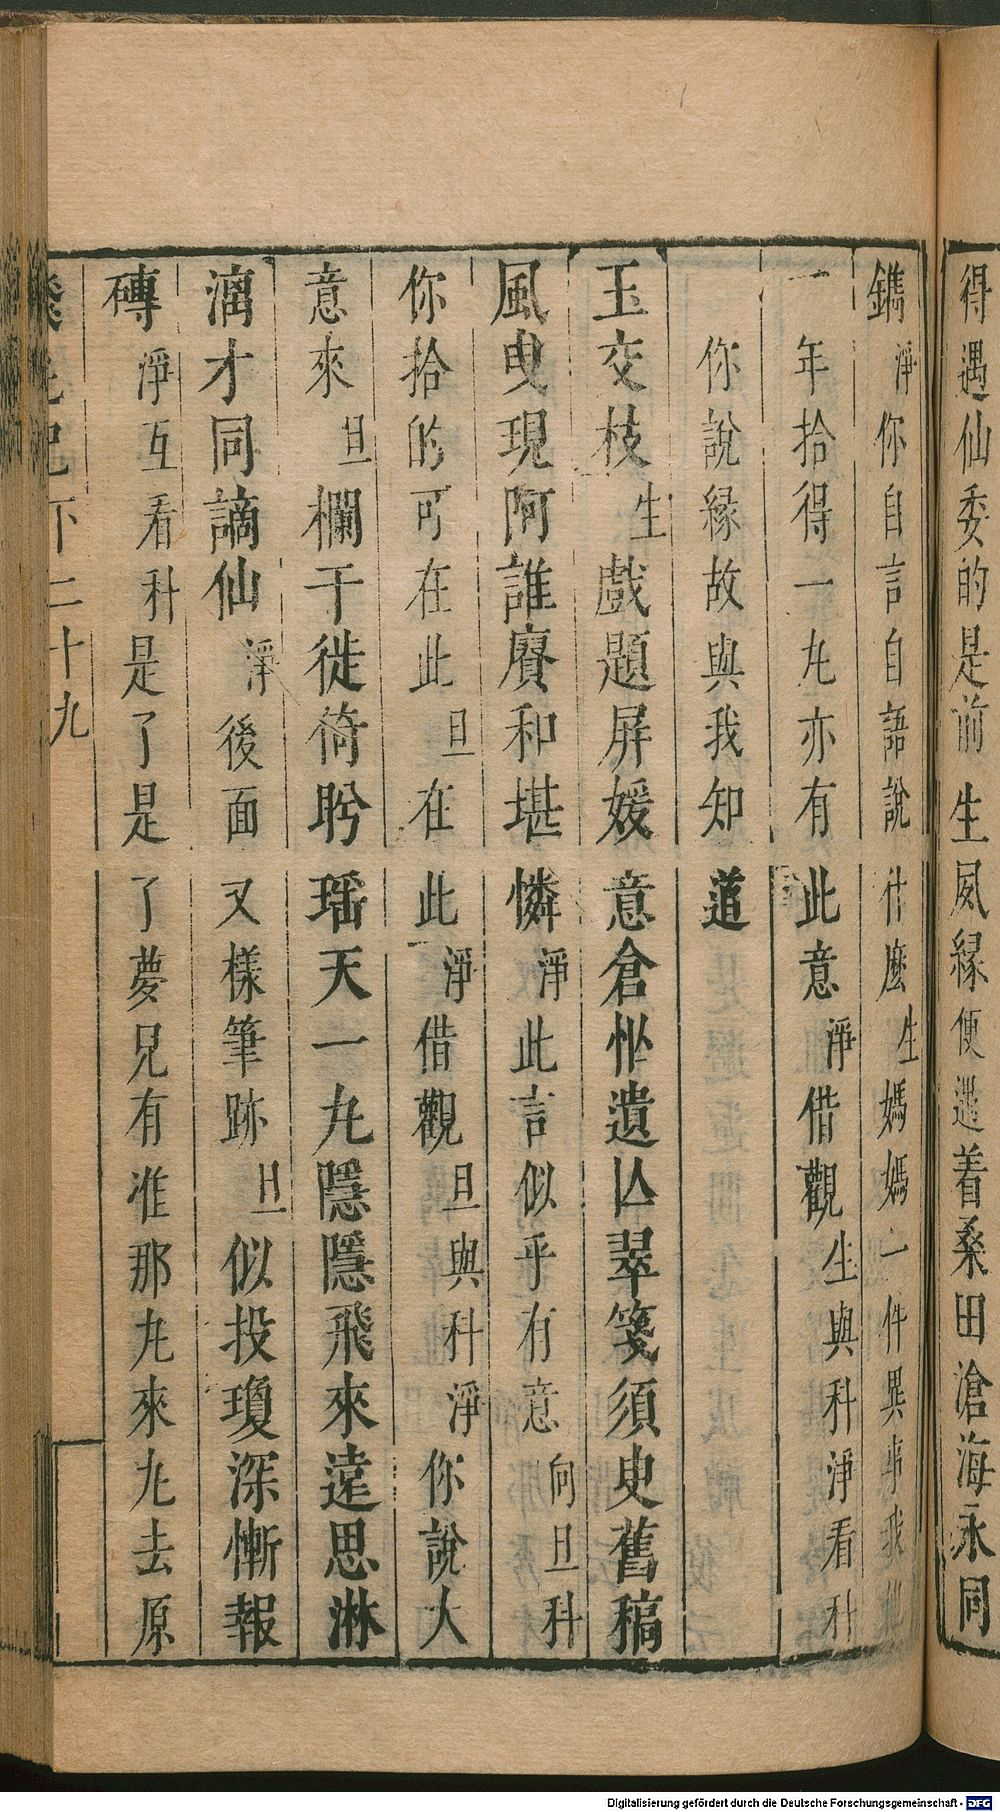 得遇仙委的是前生夙緣便遇着桑田滄海永同
鐫淨你自言自語說什麽生媽媽一件異事我
一年拾得一𠃵亦有此意淨借觀生與科淨看科
你說緣故與我知道
玉交枝生戲題屏媛意倉忙遺亾翠箋須臾舊稿
風曳現阿誰賡和堪憐淨此言似乎有意向旦科
你拾的可在此旦在此淨借觀旦與科淨你說大
意來旦欄干徙倚盻瑶天一𠃵隱隱飛來遠思淋
漓才同謫仙淨後面又樣筆跡旦似投瓊深慚報
磚淨互看科是了是了夢兄有准那𠃵來𠃵去原
下二十九
Digitalisierung gefördert durch die Deutsche Forschungsgemeinschaft - DFG